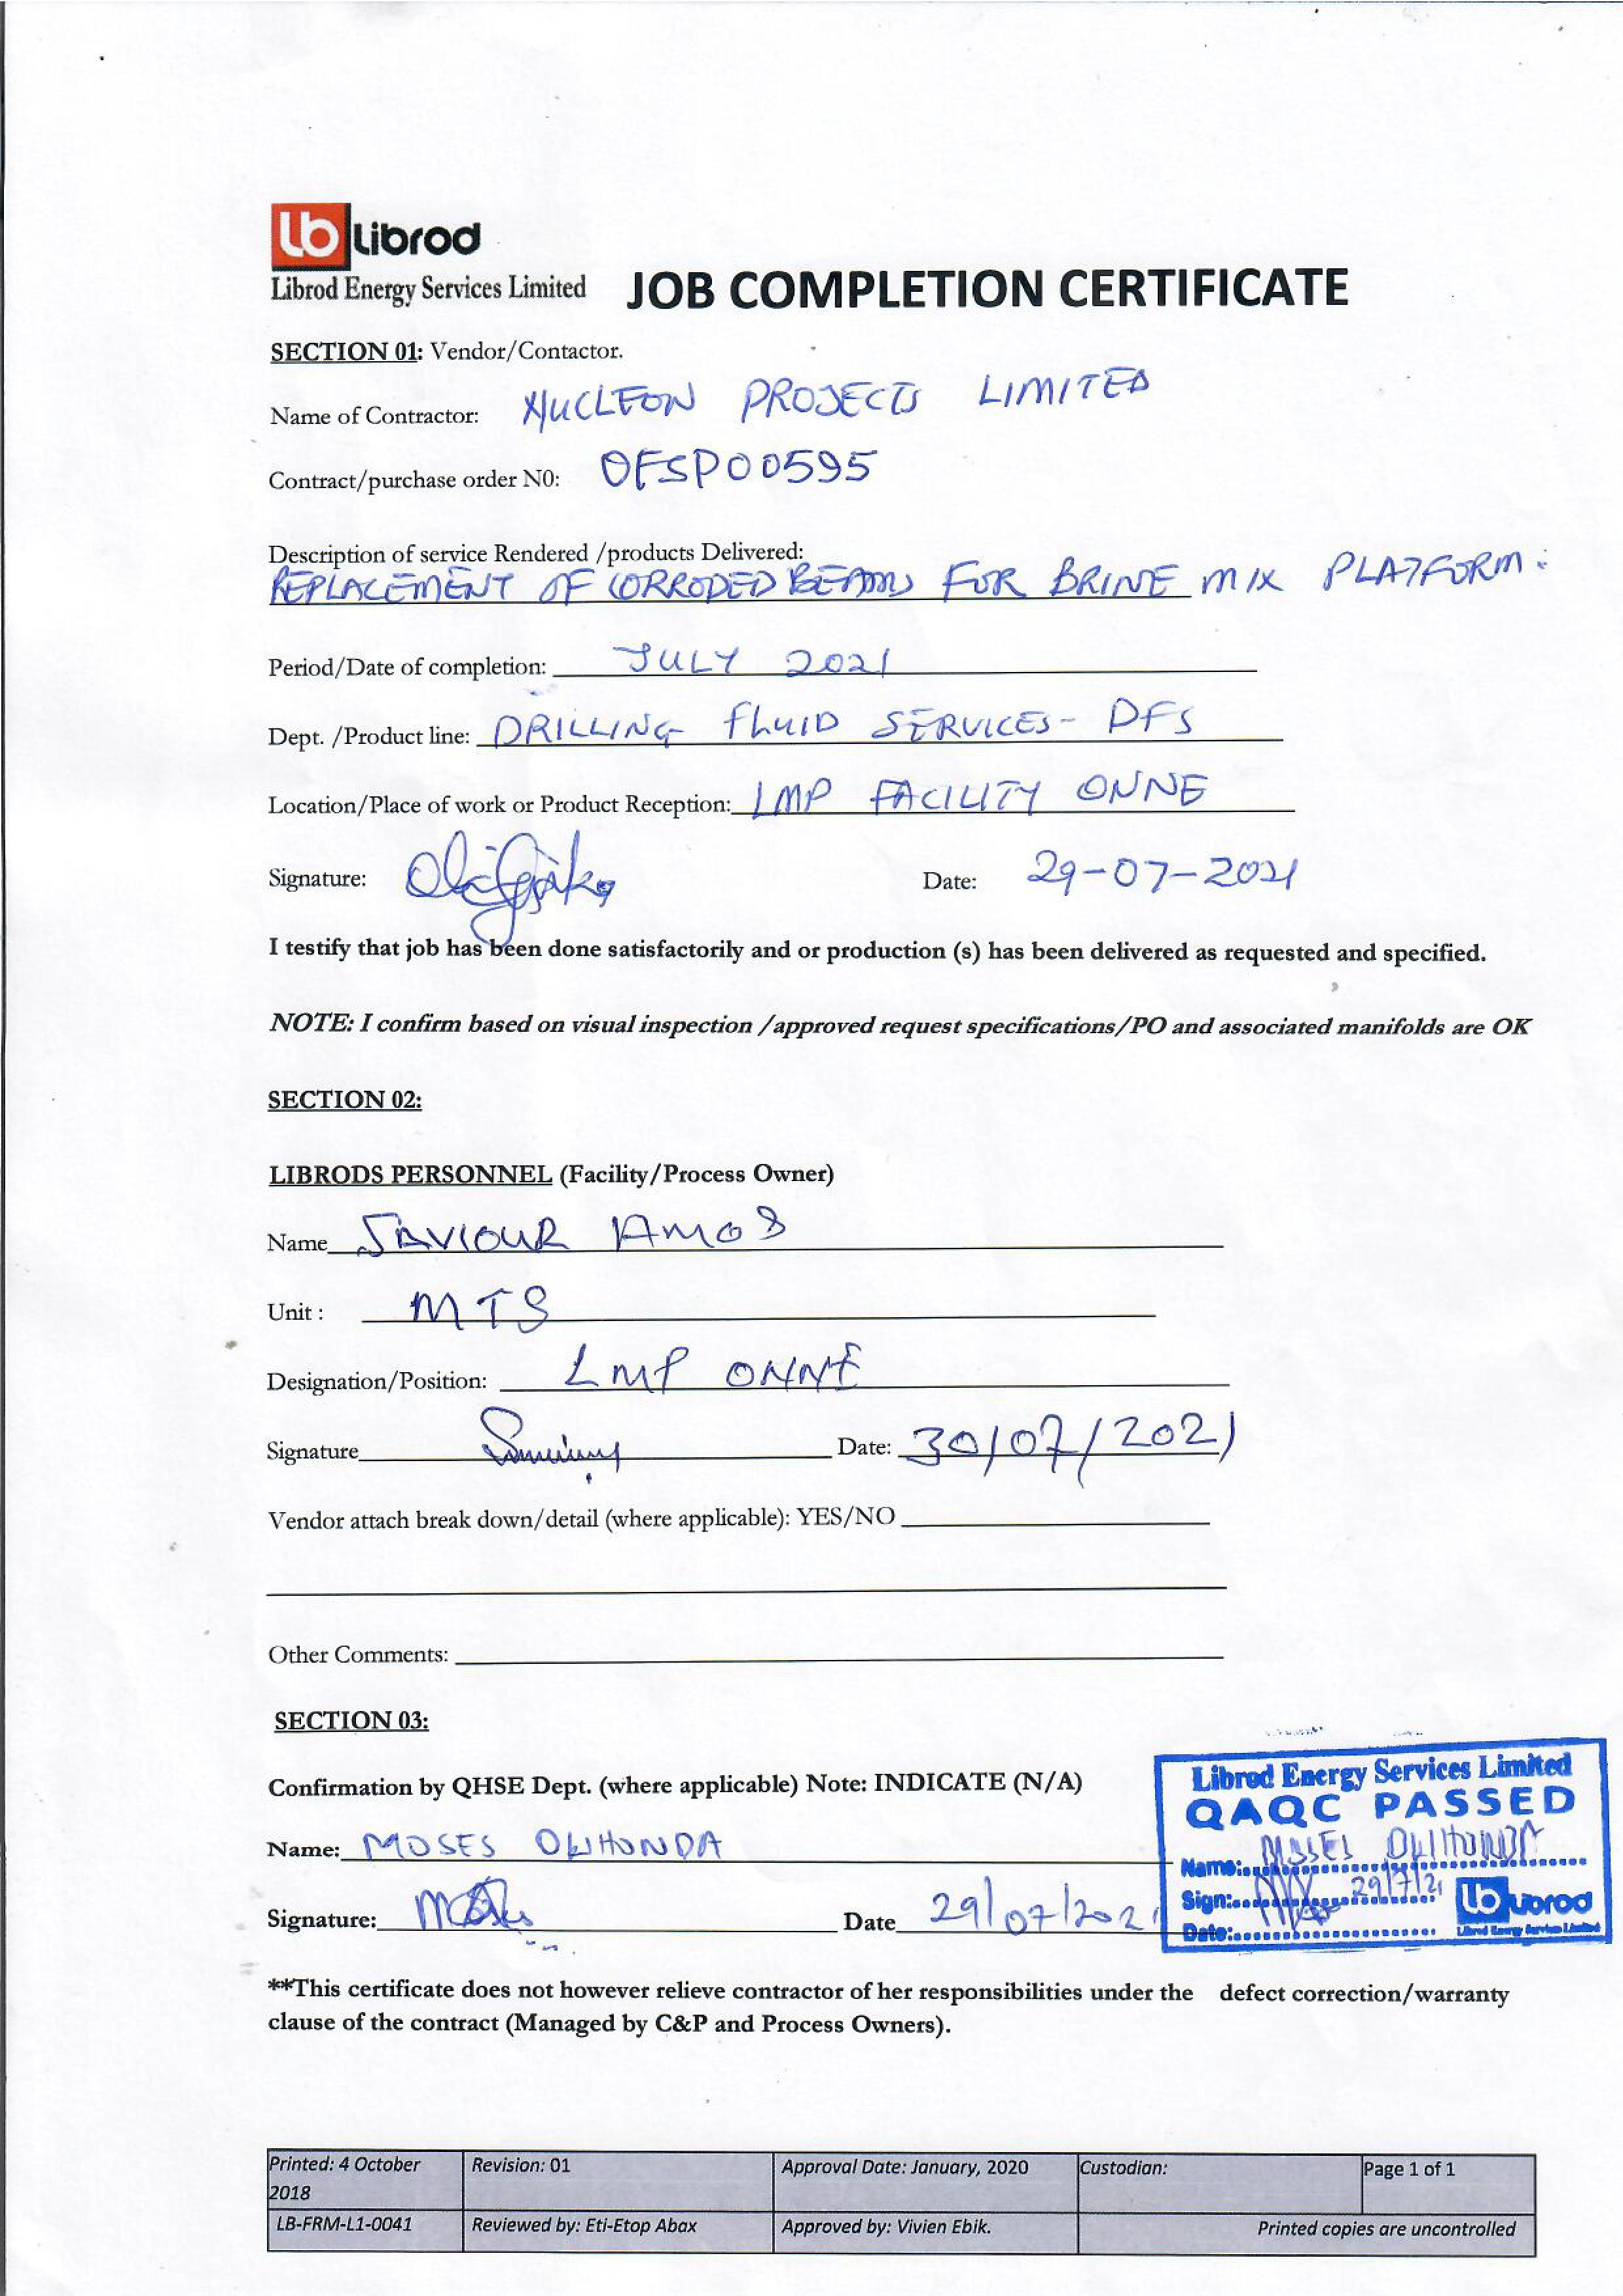 lb Librod
Librod Energy Services Limited JOB COMPLETION CERTIFICATE
SECTION 01: Vendor/Contactor.
Name of Contractor: NUCLEON PROJECTS LIMITED
Contract/purchase order N0: OFSP00595
Description of service Rendered /products Delivered:
REPLACEMENT OF CORRODED BEAMS FOR BRINE MIX PLATFORM.
Period/Date of completion: JULY 2021
Dept. /Product line: DRILLING FLUID SERVICES- DFS
Location/Place of work or Product Reception: LMP FACILITY ONNE
Signature: Date: 29-07-2021
I testify that job has been done satisfactorily and or production (s) has been delivered as requested and specified.
NOTE: I confirm based on visual inspection /approved request specifications/PO and associated manifolds are OK
SECTION 02:
LIBRODS PERSONNEL (Facility/Process Owner)
Name SAVIOUR AMOS
Unit : MTS
Designation/Position: LMP ONNE
Signature Date: 30/07/2021
Vendor attach break down/detail (where applicable): YES/NO
Other Comments:
SECTION 03:
Confirmation by QHSE Dept. (where applicable) Note: INDICATE (N/A)
Name: MOSES OWHONDA
Signature: Date 29/07/2021
Librod Energy Services Limited
QAQC PASSED
Name: MOSES OWHONDA
Sign: 29/7/21
Date:
lb Librod
Librod Energy Services Limited
**This certificate does not however relieve contractor of her responsibilities under the defect correction/warranty
clause of the contract (Managed by C&P and Process Owners).
Printed: 4 October 2018 Revision: 01 Approval Date: January, 2020 Custodian: Page 1 of 1
LB-FRM-L1-0041 Reviewed by: Eti-Etop Abax Approved by: Vivien Ebik. Printed copies are uncontrolled